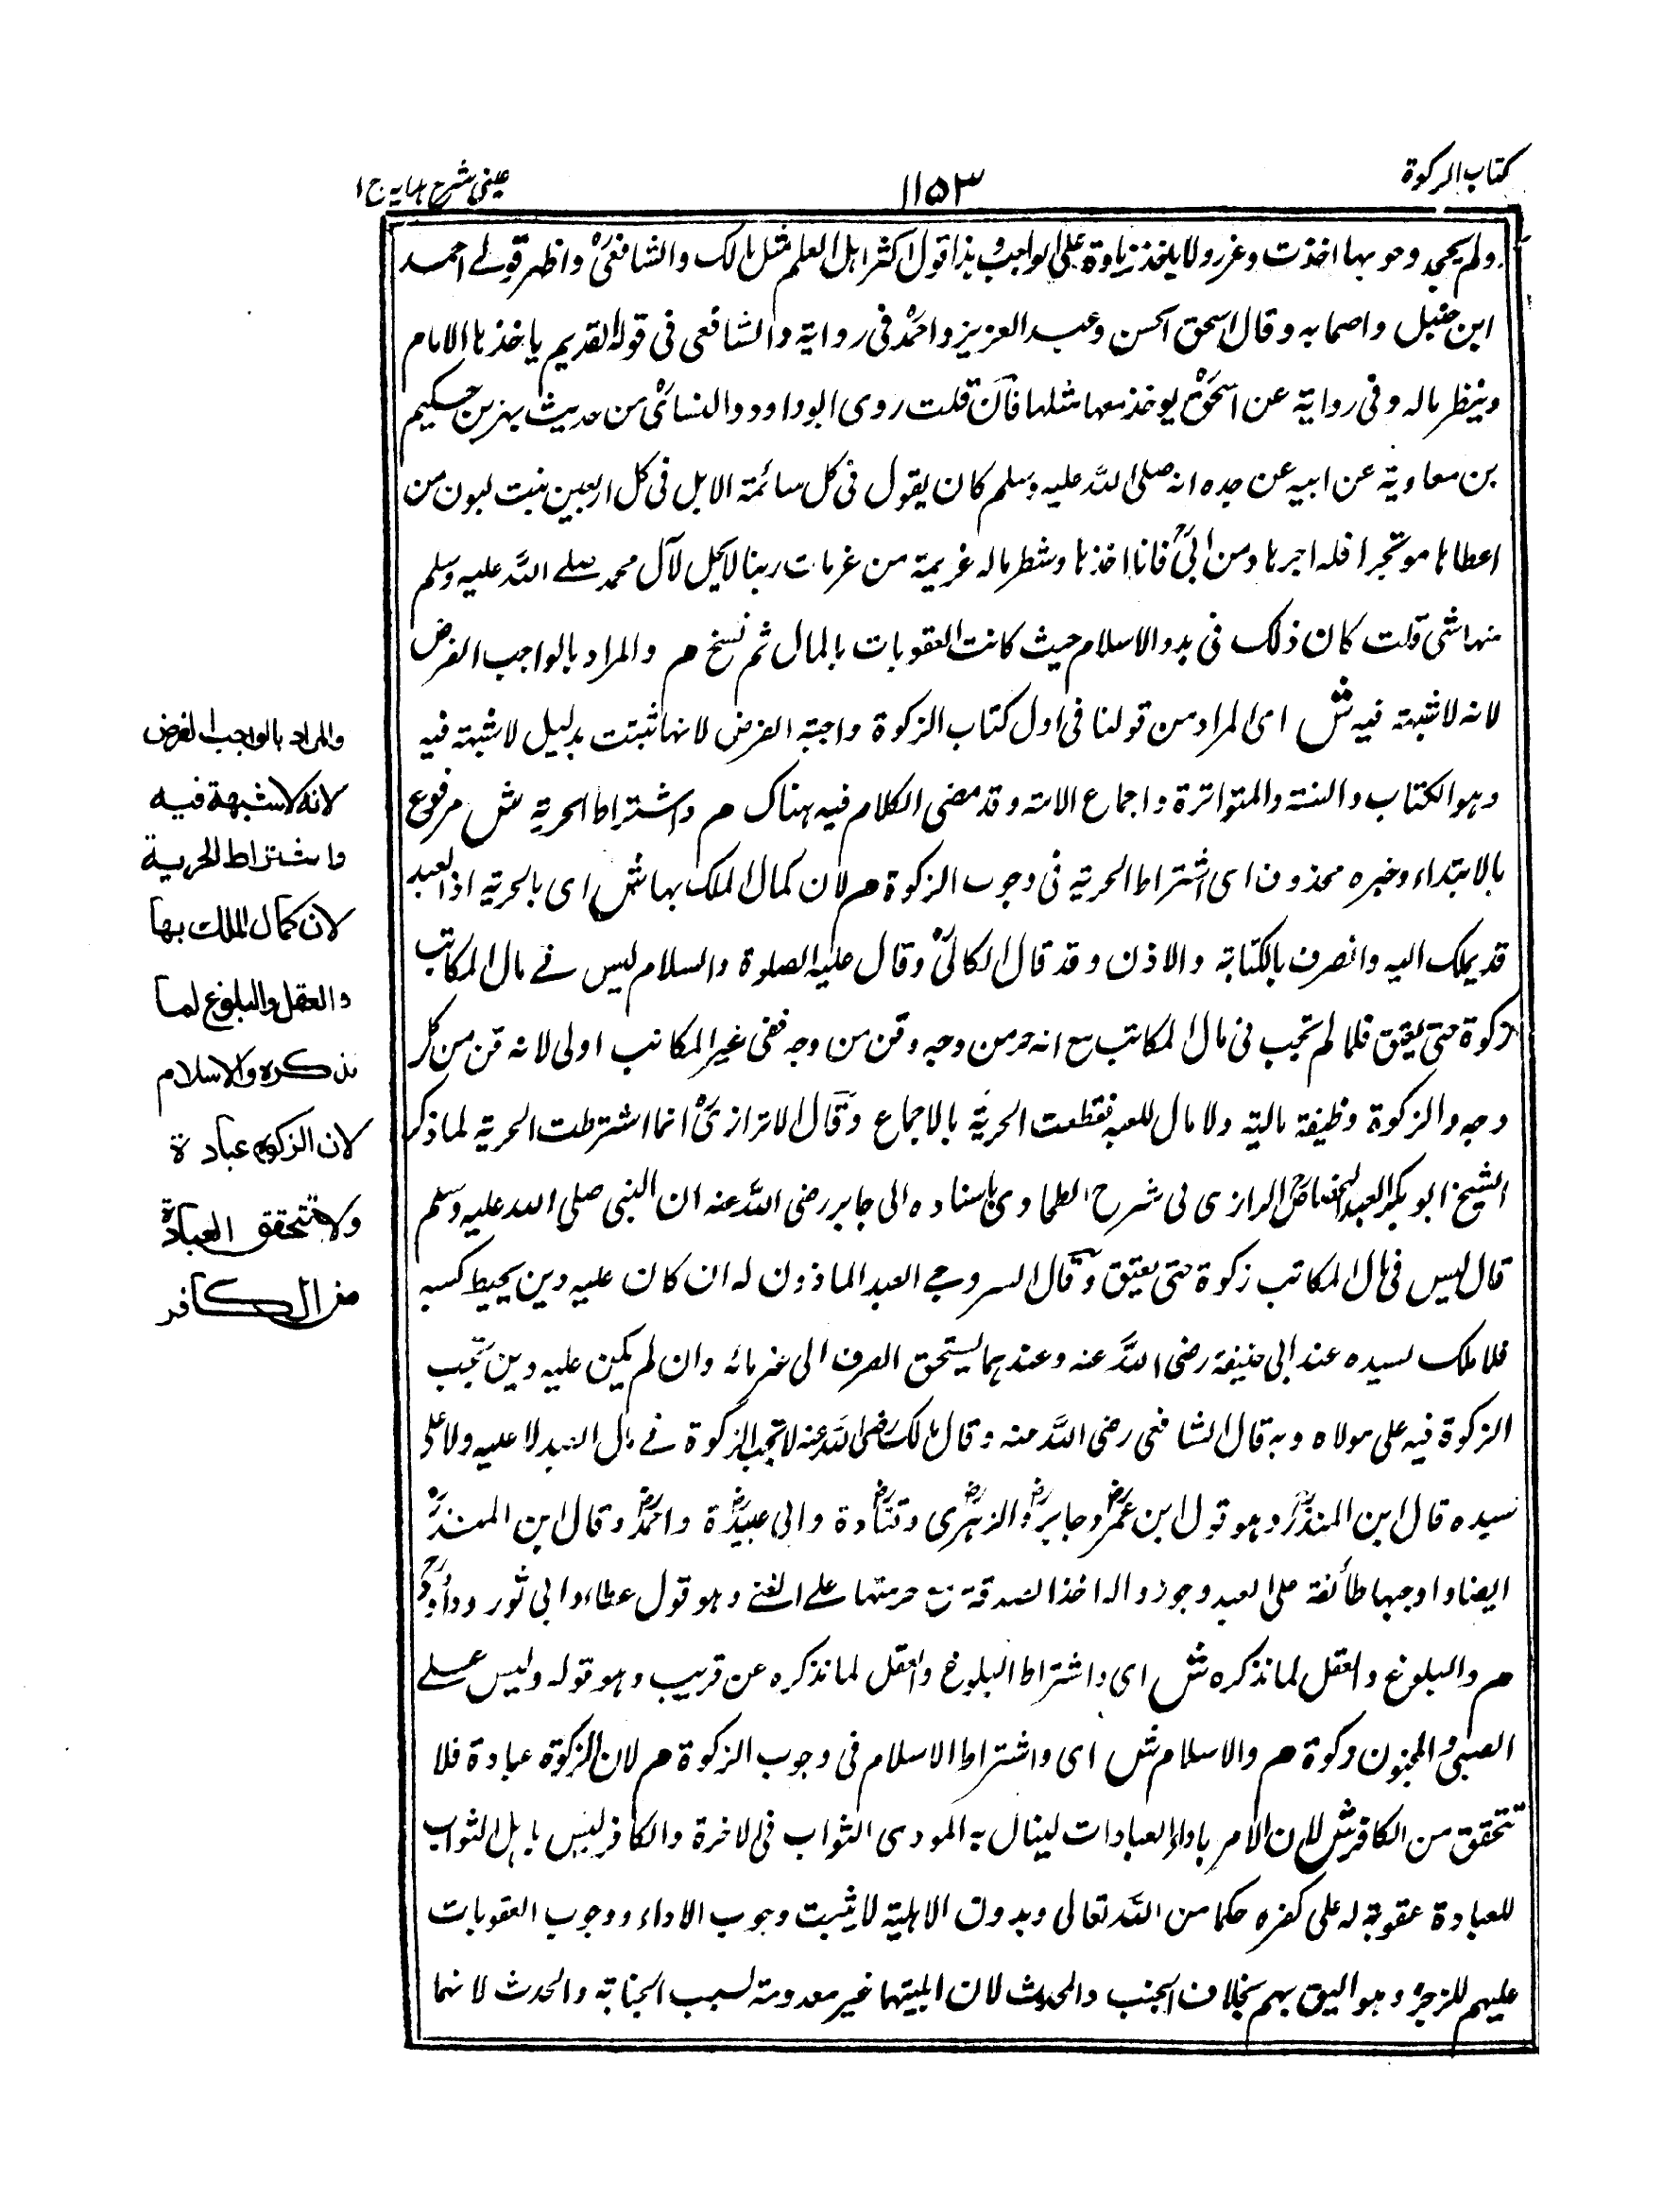 كتاب الزكوة
١١٥٣
عينى شرح هدايه ج ١
ولم يجحد وجوبها اخذت وعزر ولا ياخذ زيادة على الواجب وهذا قول اكثر اهل العلم مثل مالك والشافعى واظهر قولے احمد
ابن حنبل واصحابه وقال اسحق الحسن وعبد العزيز واحمد فى رواية والشافعى فى قوله القديم ياخذها الامام
وينظر ماله وفى رواية عن اسحق يوخذ معها مثلها فان قلت روى ابو داود والنسائى من حديث بهز بن حكيم
بن معاوية عن ابيه عن جده انه صلى الله عليه وسلم كان يقول فى كل سائمة الابل فى كل اربعين بنت لبون من
اعطاها موتجرا فله اجرها ومن ابى فانا اخذها وشطر ماله غريمة من غرمات ربنا لا يحل لآل محمد صلے الله عليه وسلم
منها شى قلت كان ذلك فى بدو الاسلام حيث كانت العقوبات بالمال ثم نسخ م والمراد بالواجب الفرض
لانه لا شبهة فيه ش اى المراد من قولنا فى اول كتاب الزكوة واجبة الفرض لانها ثبتت بدليل لا شبهة فيه
وهو الكتاب والسنة والمتواترة واجماع الامة وقد مضى الكلام فيه هناك م واشتراط الحرية ش مرفوع
بالابتداء وخبره محذوف اى اشتراط الحرية فى وجوب الزكوة م لان كمال الملك بها ش اى بالحرية اذ العبد
قد يملك اليه والتصرف بالكتابة والاذن وقد قال الكاكى وقال عليه الصلوة والسلام ليس فے مال المكاتب
زكوة حتى يعتق فلما لم تجب فى مال المكاتب مع انه حر من وجه وقن من وجه ففى غير المكاتب اولى لانه قن من كل
وجه والزكوة وظيفة مالية ولا مال للعبد فقطعت الحرية بالاجماع وقال الاترازى انما اشترطت الحرية لما ذكر
الشيخ ابو بكر الجصاص الرازى فى شرح الطحاوى باسناده الى جابر رضى الله عنه ان النبى صلى الله عليه وسلم
قال ليس فى مال المكاتب زكوة حتى يعتق وقال السروجے العبد الماذون له ان كان عليه دين يحيط كسبه
فلا ملك لسيده عند ابى حنيفة رضى الله عنه وعندهما يستحق الصرف الى غرمائه وان لم يكن عليه دين تجب
الزكوة فيه على مولاه وبه قال الشافعى رضى الله عنه وقال مالك رضى الله عنه لا تجب الزكوة فے مال العبد لا عليه ولا على
سيده قال ابن المنذر وهو قول ابن عمر وجابر والزهرى وقتادة وابى عبيدة واحمد وقال ابن المنذر
ايضا واوجبها طائفة على العبد وجوزوا له اخذ الصدقة مع حرمتها علے الغنے وهو قول عطاء وابى ثور وداود
م والبلوغ والعقل لما نذكره ش اى واشتراط البلوغ والعقل لما نذكره عن قريب وهو قوله وليس علے
الصبى والمجنون زكوة م والاسلام ش اى واشتراط الاسلام فى وجوب الزكوة م لان الزكوة عبادة فلا
تتحقق من الكافر ش لان الامر باداء العبادات لينال به المودى الثواب فى الاخرة والكافر ليس باهل الثواب
للعبادة عقوبة له على كفره حكما من الله تعالى وبدون الاهلية لا يثبت وجوب الاداء ووجوب العقوبات
عليهم للزجر وهو اليق بهم بخلاف الجنب والمحدث لان اهليتهما غير معدومة لسبب الجنابة والحدث لانهما
والمراد بالواجب الفرض
لانه لا شبهة فيه
واشتراط الحرية
لان كمال الملك بها
والعقل والبلوغ لما
نذكره والاسلام
لان الزكوة عبادة
ولا تتحقق العبادة
من الكافر